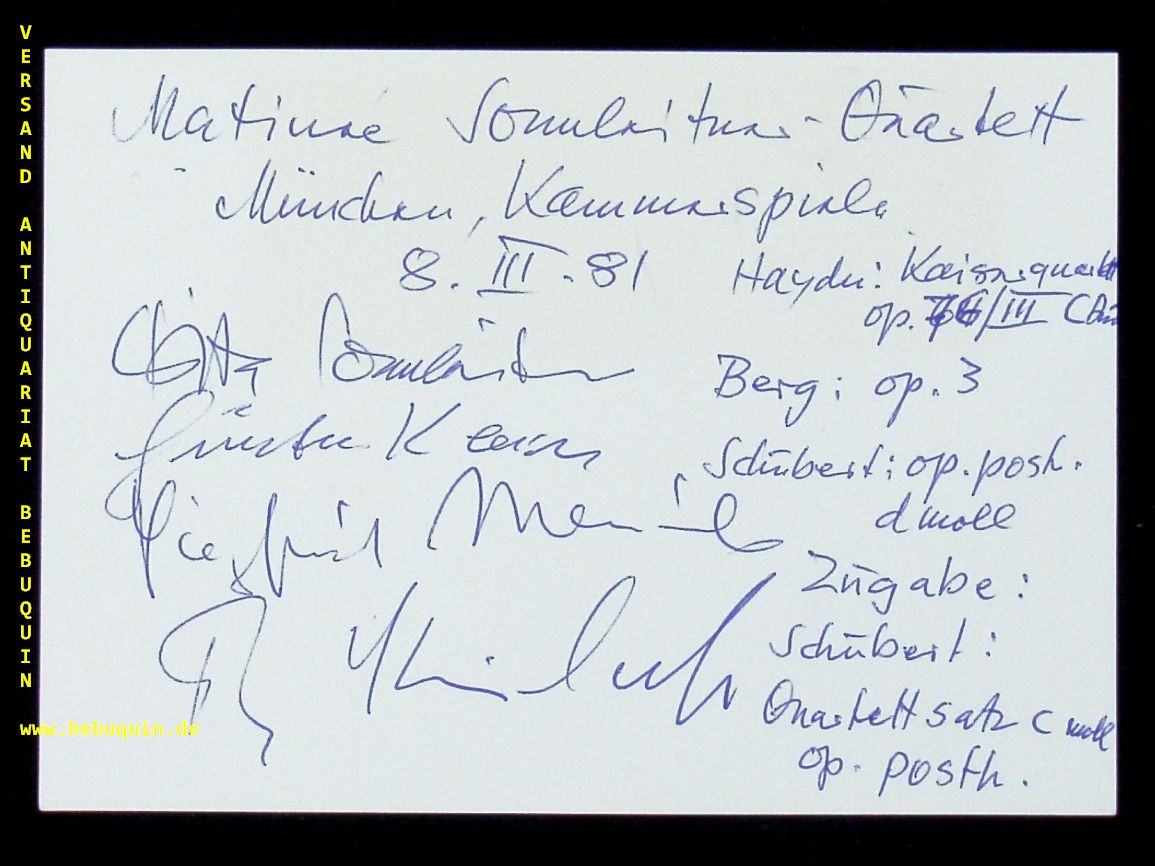 VERSAND ANTIQUARIAT BEBUQUIN
Matinée Sonnleitner-Quartett
München, Kammerspiele
8. III. 81
Haydn: Kaiserquartett
op. 76/III C Dur
Berg: op. 3
Schubert: op. posth.
d moll
Zugabe:
Schubert:
Quartettsatz c moll
op. posth.
Sonnleitner
Siegfried
www.bebuquin.de